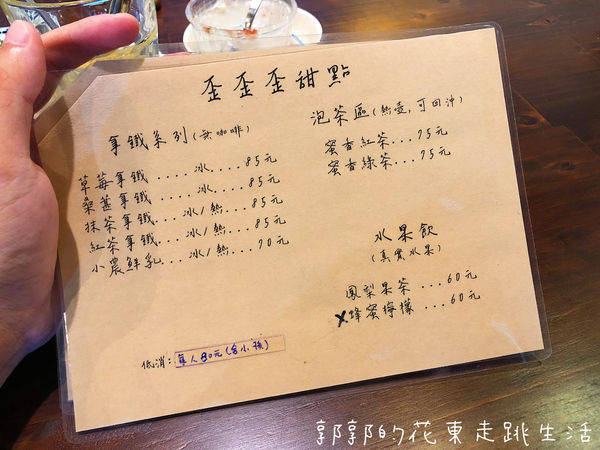 歪歪歪甜點
拿鐵系列(無咖啡)
草莓拿鐵.....冰....85元
桑葚拿鐵.....冰....85元
抹茶拿鐵...冰/熱...85元
紅茶拿鐵...冰/熱...85元
小農鮮乳...冰/熱...70元
泡茶區(熱壺,可回沖)
蜜香紅茶...75元
蜜香綠茶...75元
水果飲
(真實水果)
鳳梨果茶...60元
X蜂蜜檸檬...60元
低消:每人80元(含小孩)
郭郭的花東走跳生活